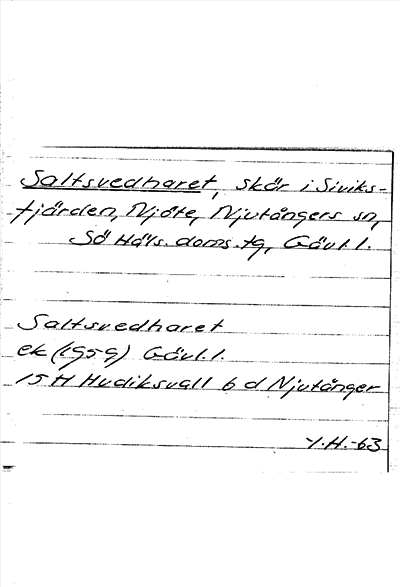 Saltsvedharet, skär i Siviks-
fjärden, Njöte, Njutångers sn,
Sö Häls. doms. tg, Gävl.l.
Saltsvedharet
ek (1959) Gävl.l.
15 H Hudiksvall 6 d Njutånger
Y.H.-63